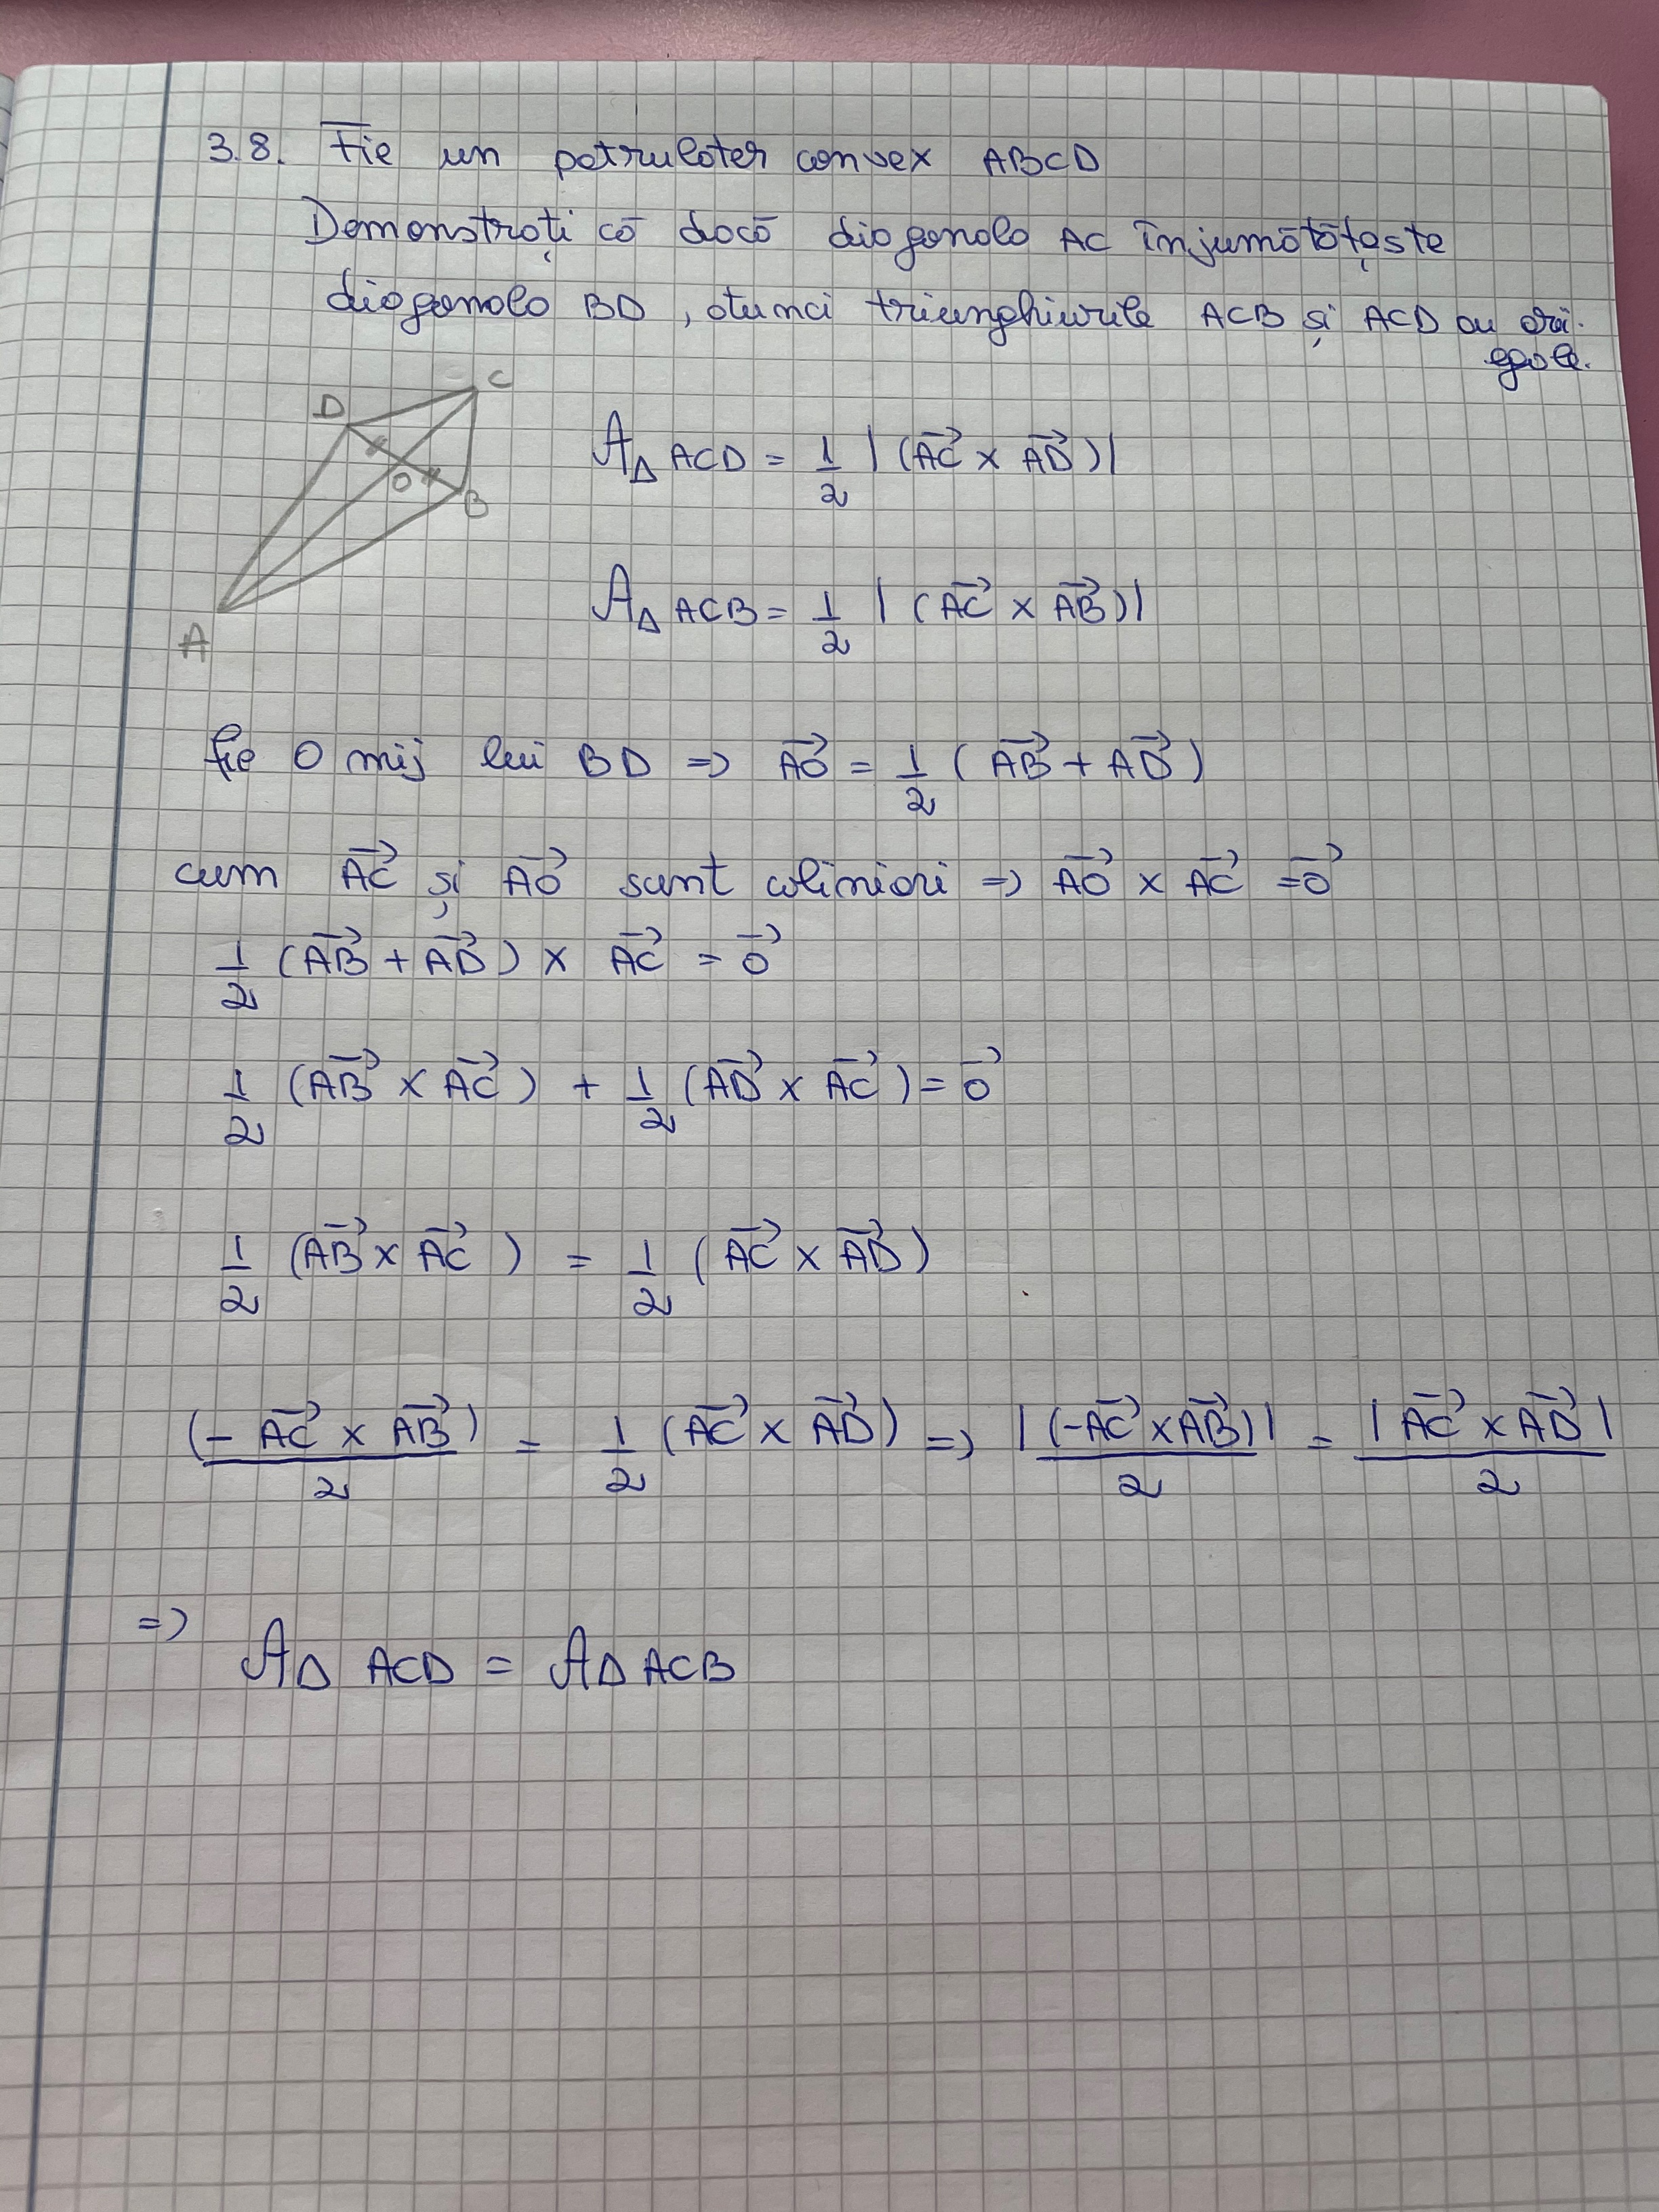 3.8. Fie un patrulater convex ABCD
Demonstrați că dacă diagonala AC înjumătățește
diagonala BD, atunci triunghiurile ACB și ACD au arii.
egale.
D C
O
B
A
A_Δ ACD = 1/2 |(AC⃗ × AD⃗)|
A_Δ ACB = 1/2 |(AC⃗ × AB⃗)|
fie O mij lui BD => AO⃗ = 1/2 (AB⃗ + AD⃗)
cum AC⃗ și AO⃗ sunt coliniari => AO⃗ × AC⃗ = 0⃗
1/2 (AB⃗ + AD⃗) × AC⃗ = 0⃗
1/2 (AB⃗ × AC⃗) + 1/2 (AD⃗ × AC⃗) = 0⃗
1/2 (AB⃗ × AC⃗) = 1/2 (AC⃗ × AD⃗)
(- AC⃗ × AB⃗)/2 = 1/2 (AC⃗ × AD⃗) => |(-AC⃗ × AB⃗)|/2 = |AC⃗ × AD⃗|/2
=> A_Δ ACD = A_Δ ACB